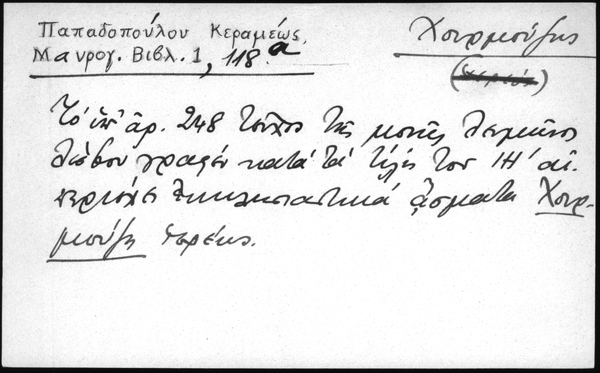 Παπαδοπούλου Κεραμέως,
Μαυρογ. Βιβλ. 1, 118 α
Χουρμούζης
Τὸ ὑπ' ἀρ. 248 τεῦχος τῆς μονῆς Λειμῶνος
Λέσβου γραφὲν κατὰ τὰ τέλη τοῦ ΙΗ' αἰ.
περιέχει ἐκκλησιαστικὰ ᾄσματα Χουρ-
μούζη ἱερέως.